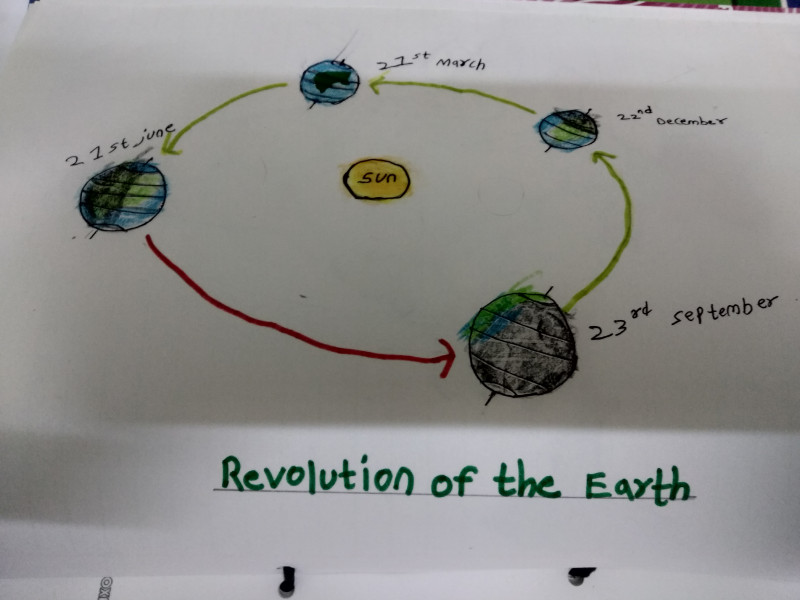 21st March
22nd December
21st june
sun
23rd september
Revolution of the Earth